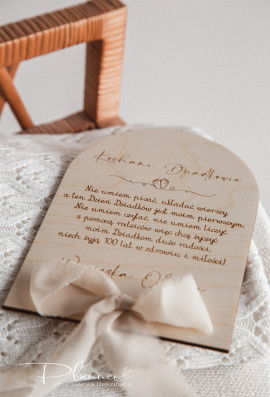 Kochani Dziadkowie
Nie umiem pisać, układać wierszy
a ten Dzień Dziadków jest moim pierwszym.
Nie umiem czytać, nie umiem liczyć
z pomocą rodziców więc chcę życzyć
moim Dziadkom dużo radości,
niech żyją 100 lat w zdrowiu i miłości!